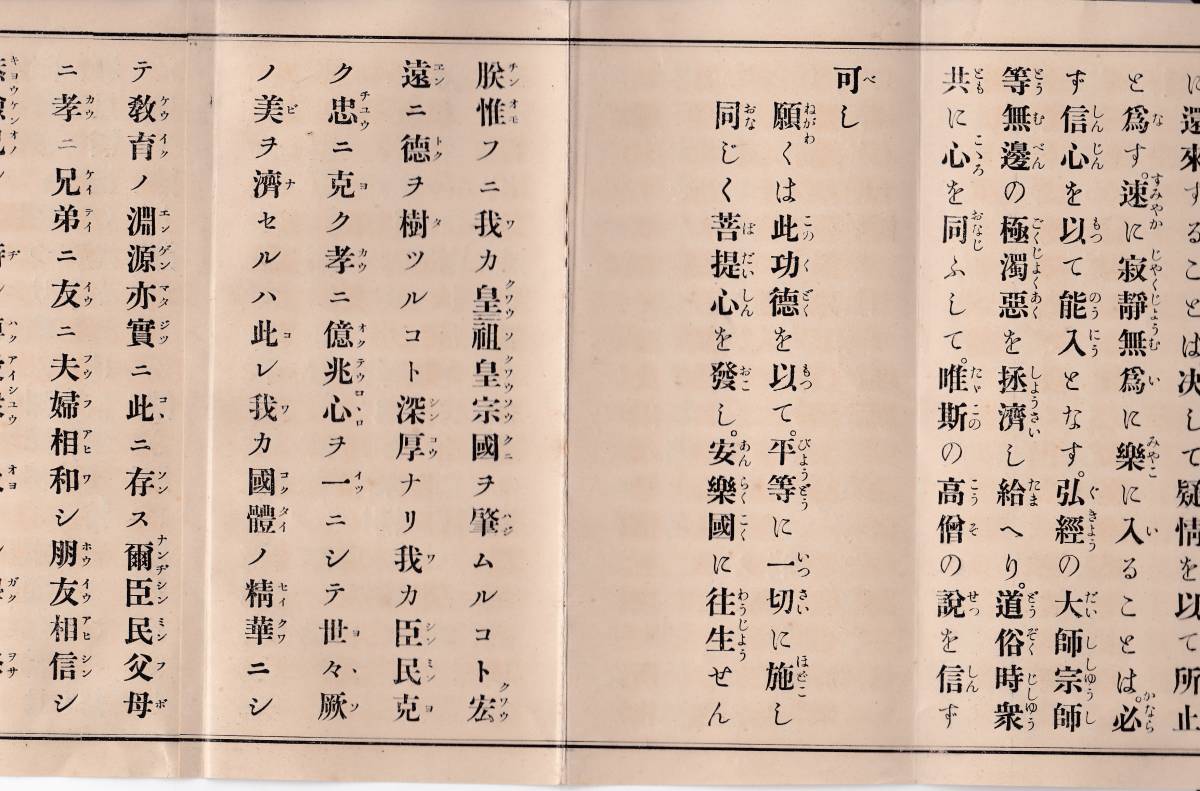 に還來することは决して疑情を以て所止
と爲す。速に寂靜無爲に樂に入ることは。必
す信心を以て能入となす。弘經の大師宗師
等無邊の極濁惡を拯濟し給へり。道俗時衆
共に心を同ふして。唯斯の高僧の說を信ず
可し
願くは此功德を以て。平等に一切に施し
同じく菩提心を發し。安樂國に往生せん
朕惟フニ我カ皇祖皇宗國ヲ肇ムルコト宏
遠ニ德ヲ樹ツルコト深厚ナリ我カ臣民克
ク忠ニ克ク孝ニ億兆心ヲ一ニシテ世々厥
ノ美ヲ濟セルハ此レ我カ國體ノ精華ニシ
テ敎育ノ淵源亦實ニ此ニ存ス爾臣民父母
ニ孝ニ兄弟ニ友ニ夫婦相和シ朋友相信シ